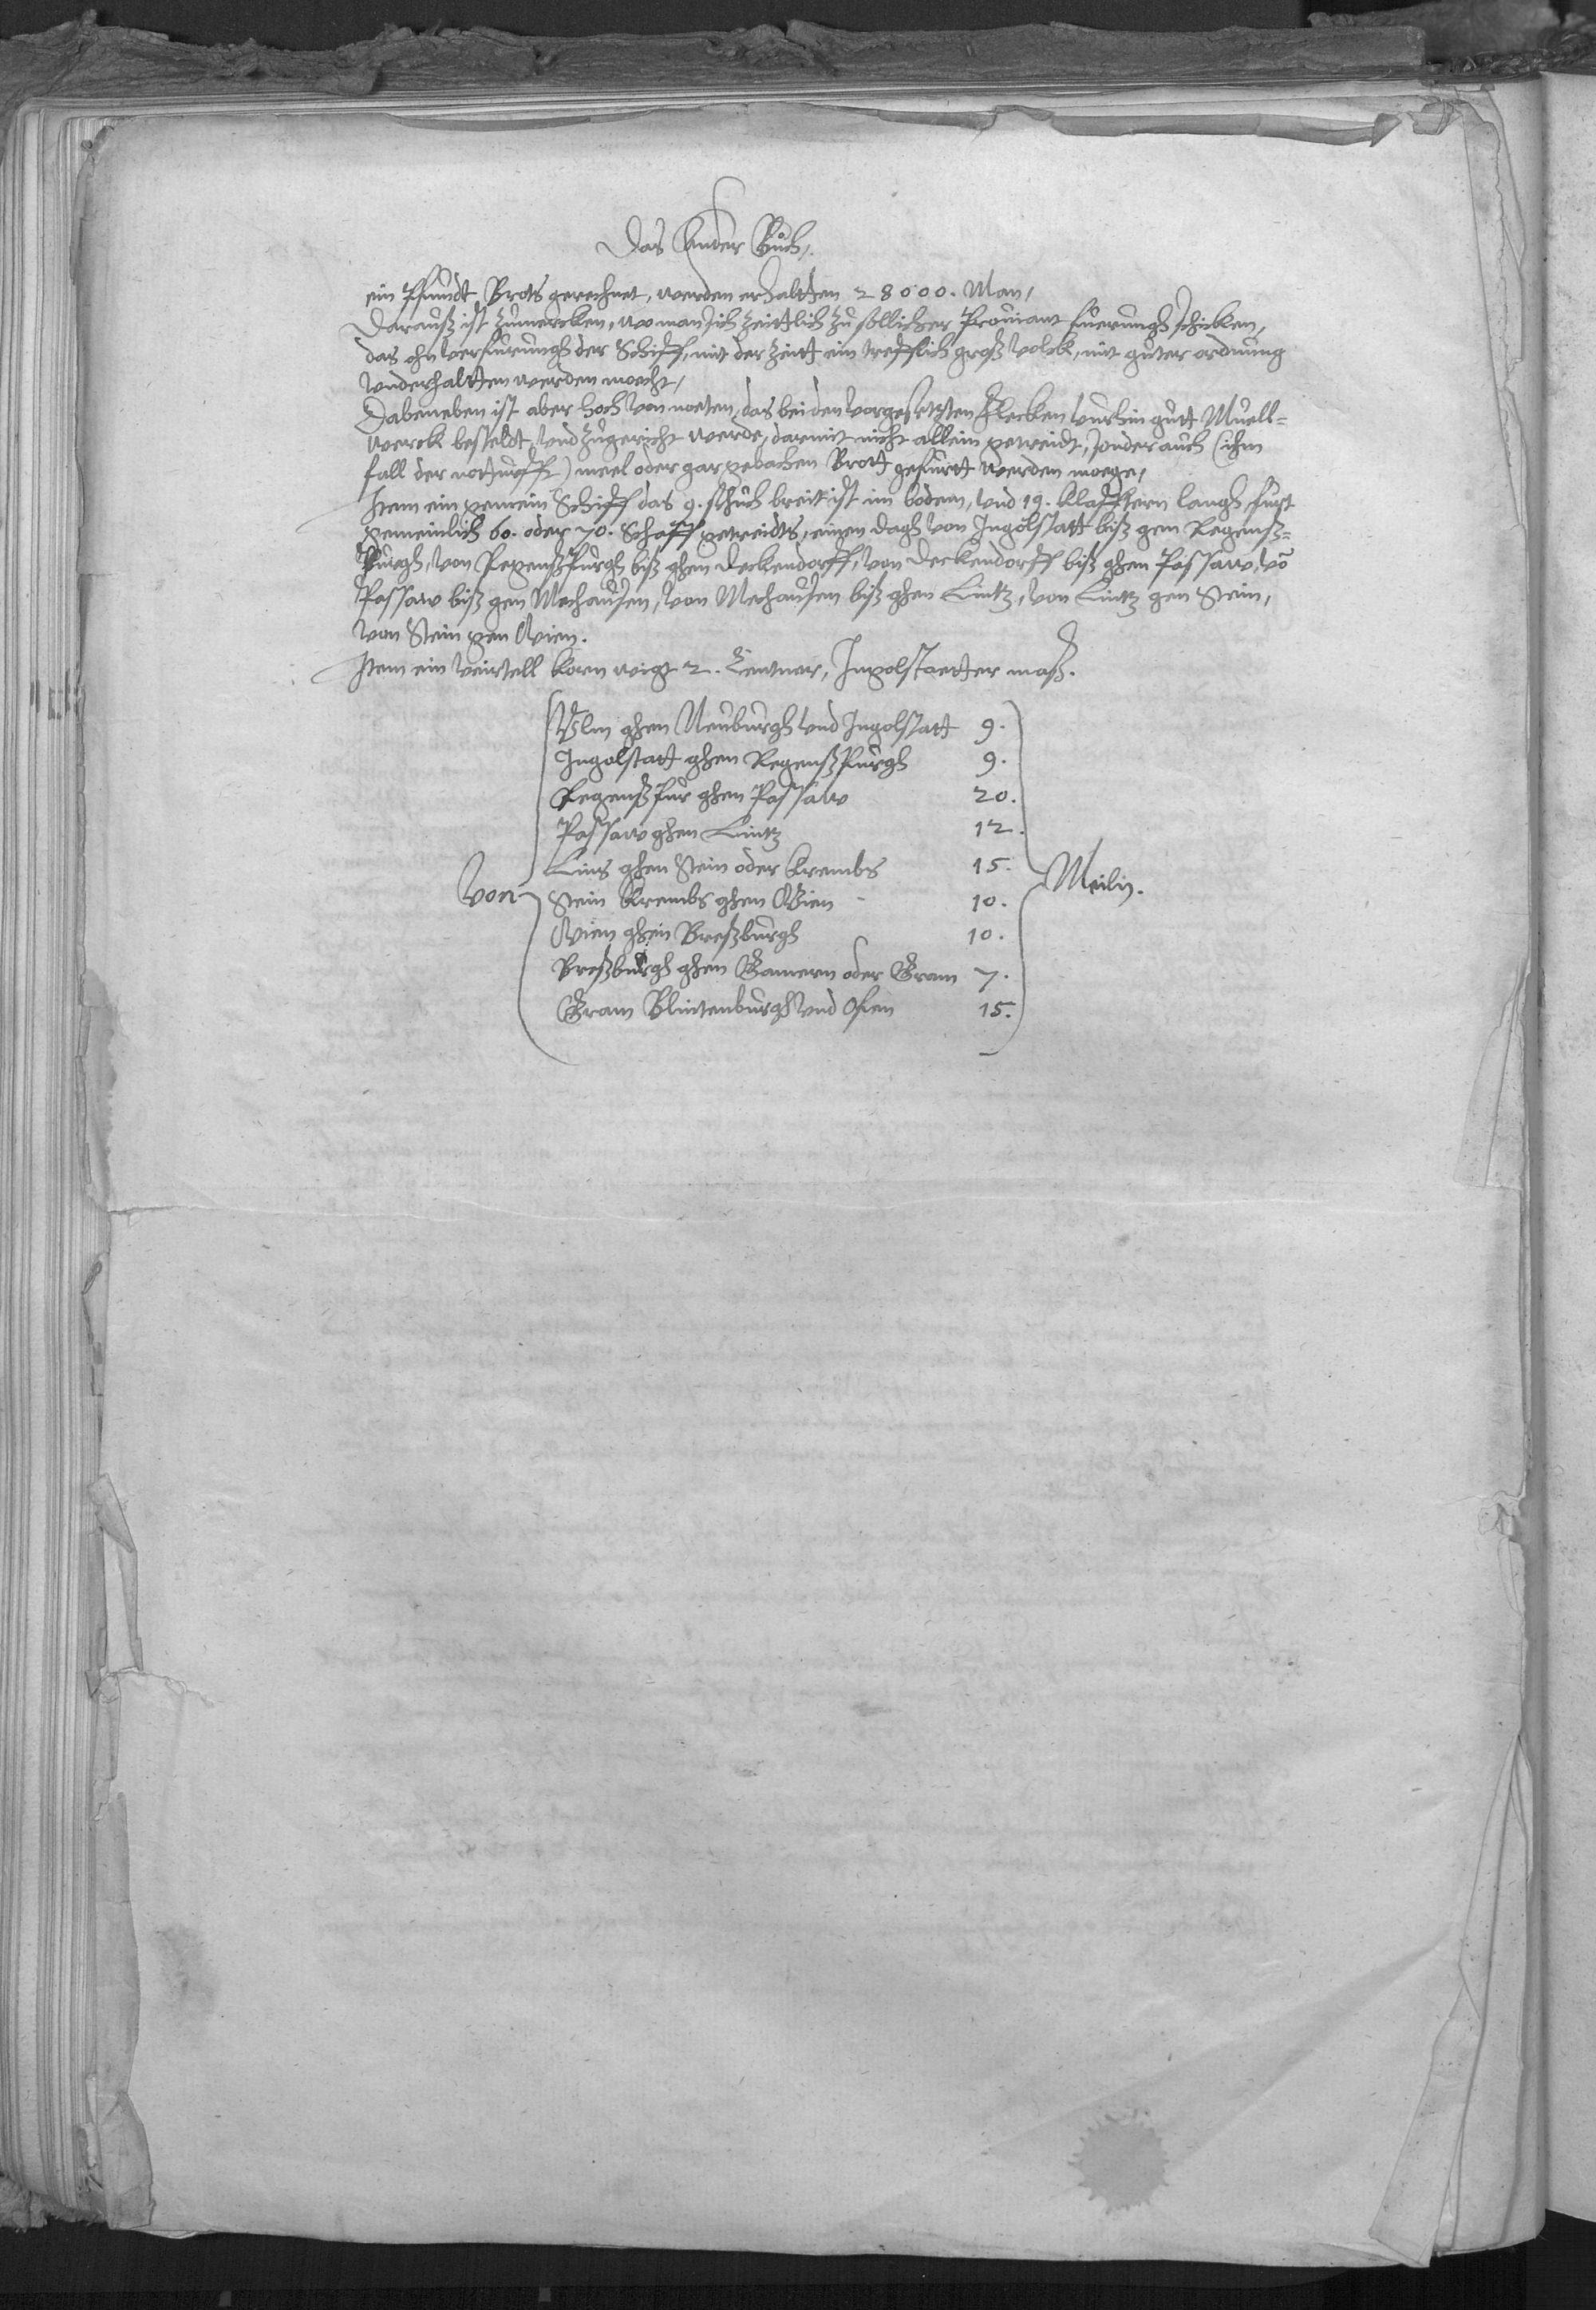 Das Ander Buch,
ein Pfundt Brots gerechnet, werden erhaltten 28000. Man,
Darausz ist zumercken, wo man sich zeittlich zu sollicher Prouiant fuerungh schicken,
das ohn verfuerungh der Schiff, mit der zeitt ein trefflich gross volck, mit guter ordnung
vnderhaltten werden moecht,
Dabeneben ist aber hoch von noeten, das bei den vorgesetzten Flecken vurhin gutt Muell=
werck besteldt, vnd zugericht werde, darmit nicht allein getreidt, sonder auch (ihm
fall der notturfft) meel oder gar gebachen Brott gefuertt werden moege,
Item ein gemein Schiff das 9. schuch breit ist im bodem, vnd 19. klafftern langh, fuert
gemeinlich 60. oder 70. Schaff getreidts, einen dagh von Ingolstatt bisz gen Regensz=
purgh, von Regenszpurgh bisz ghen Deckendorff, von Deckendorff bisz ghen Passaw, vō
Passaw bisz gen Mechausen, von Mechausen bisz ghen Lintz, von Lintz gen Stein,
von Stein gen Wien.
Item ein veirtell korn wigt 2. Centner, Ingolstaetter masz.
Vlm ghen Neuburgh vnd Ingolstatt 9.
Ingolstatt ghen Regenszpurgh 9.
Regenszpur ghen Passaw 20.
Passaw ghen Lintz 12.
Lins ghen Stein oder Krembs 15.
Von Stein Krembs ghen Wien 10. Meilen.
Wien ghein Breszburgh 10.
Breszburgh ghen Gamern oder Gram 7.
Gram Blintenburgh vnd Ofen 15.